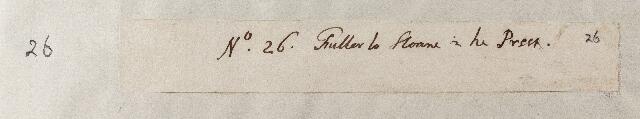 26
No. 26. Fuller to Sloane in he Prect. 26